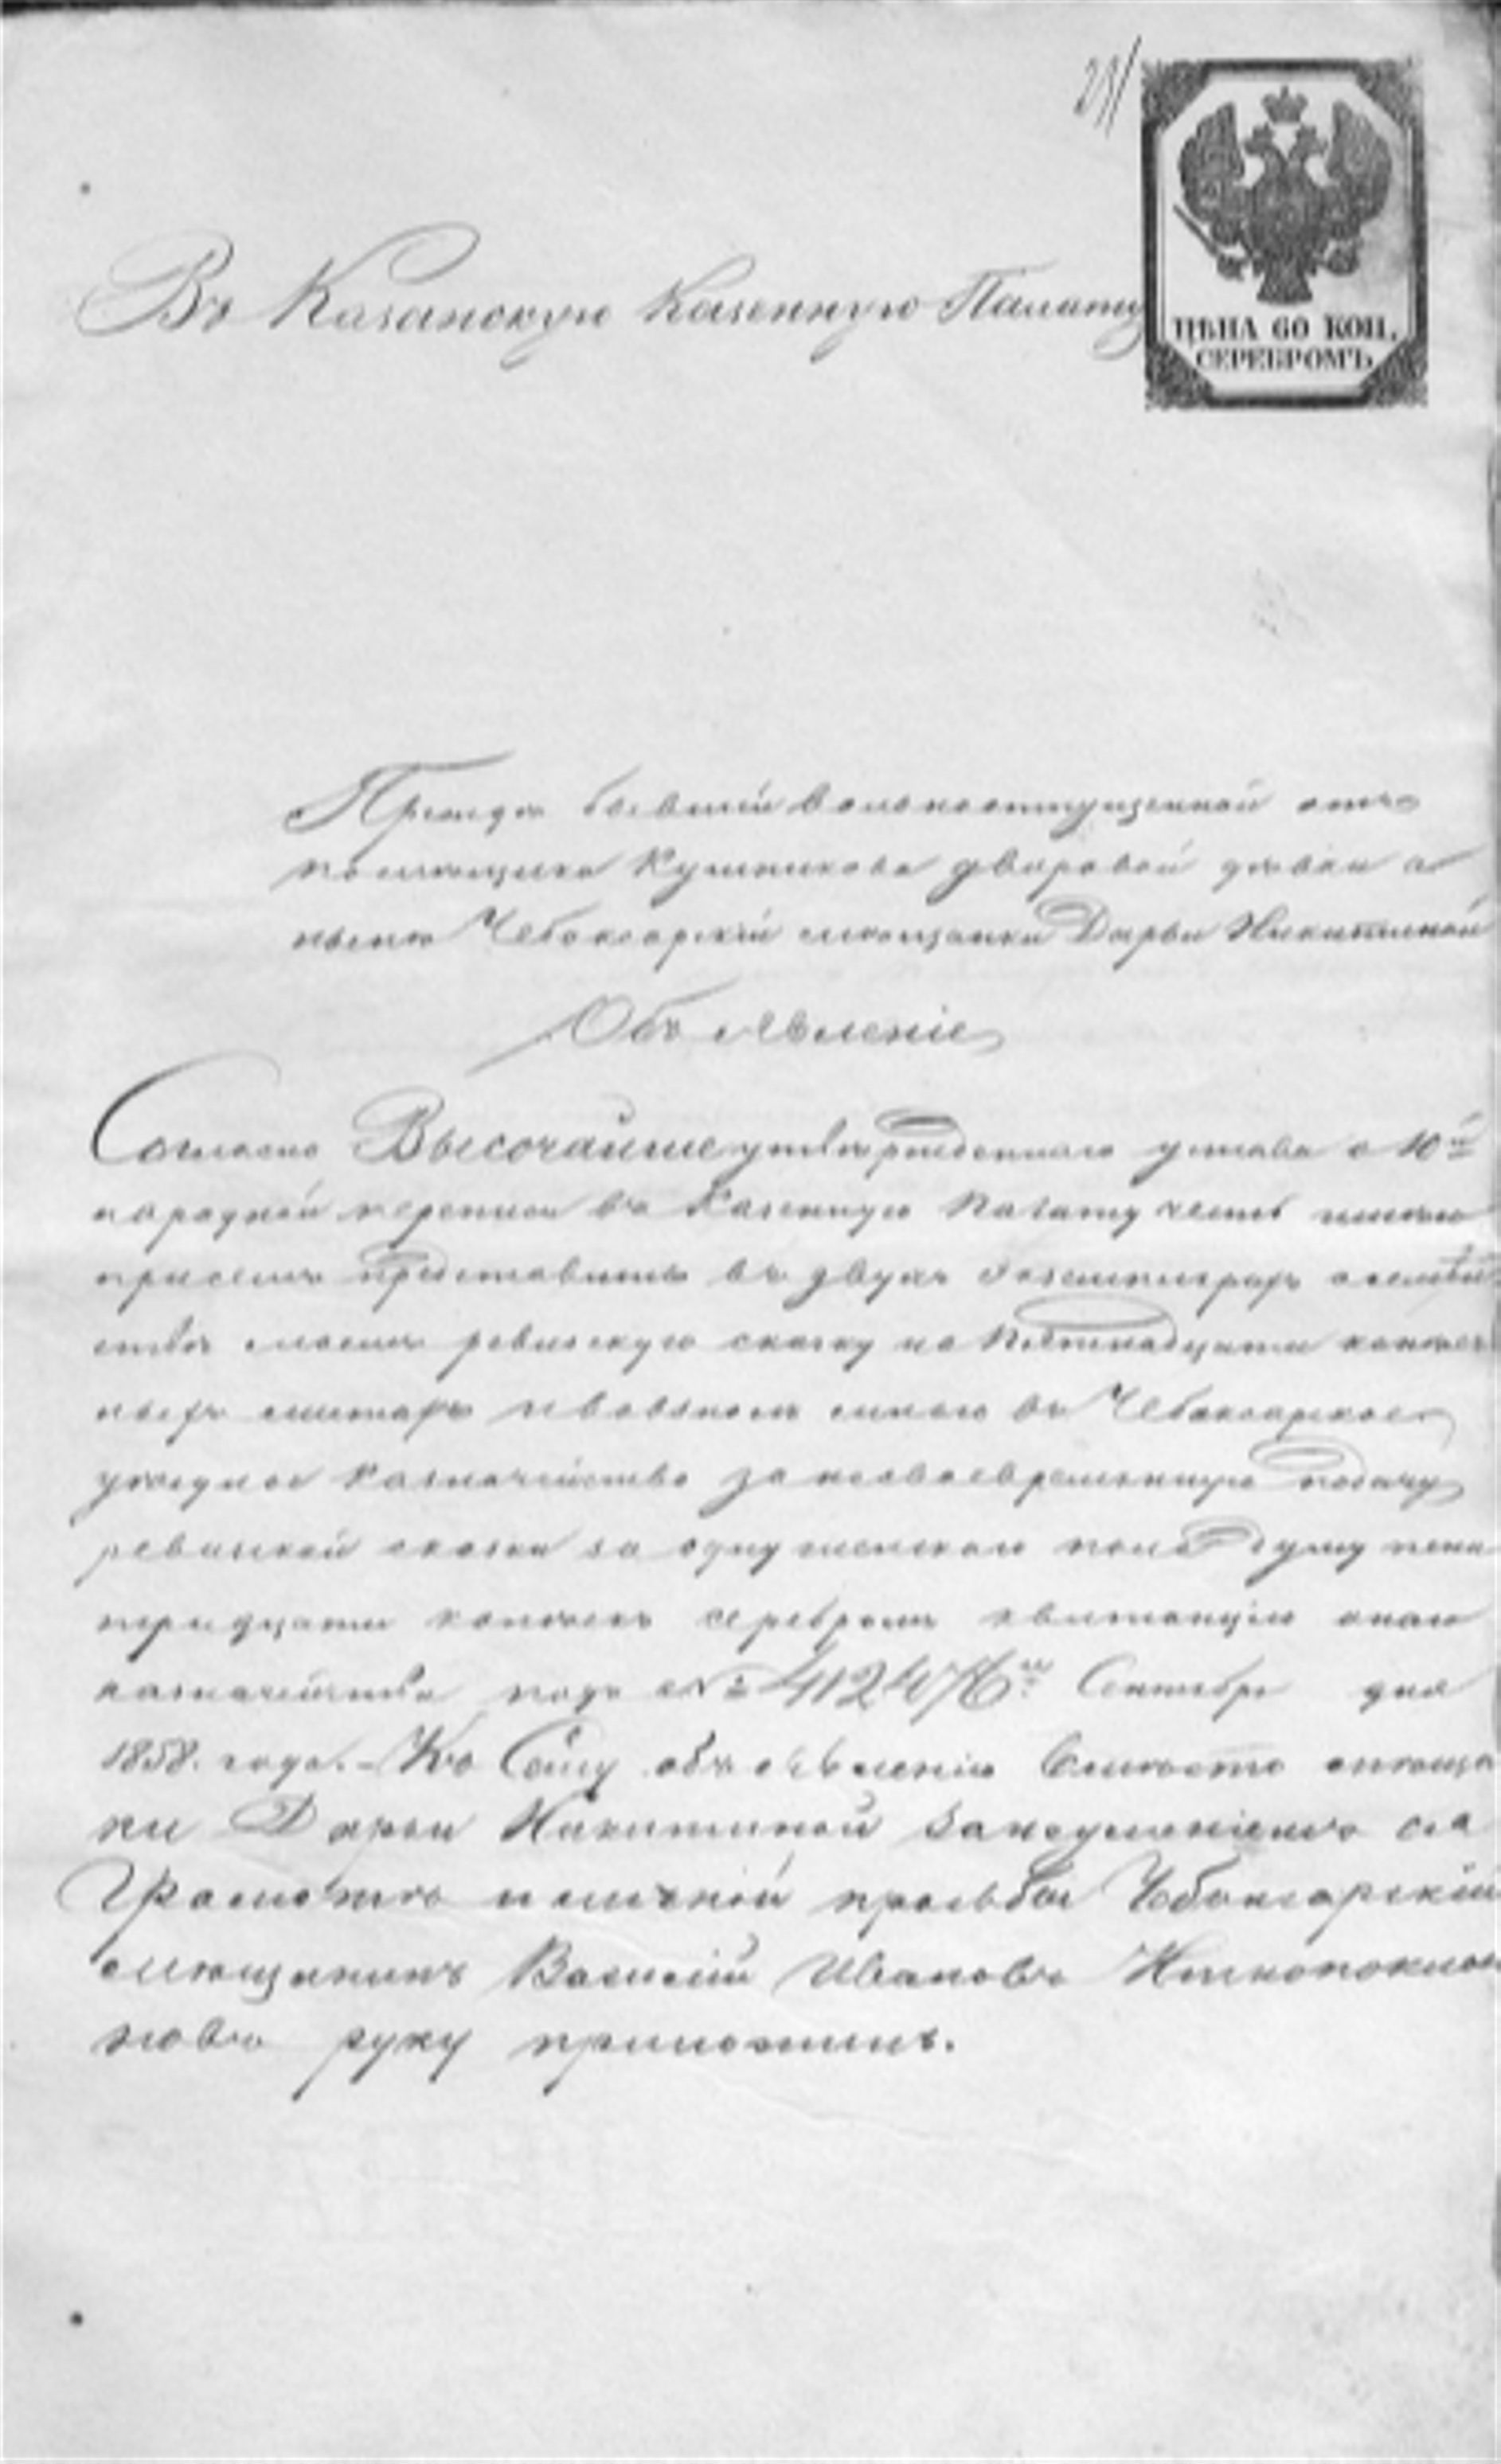 231
ЦѢНА 60 КОП.
СЕРЕБРОМЪ
Въ Казанскую Казенную Палату
Прежде бывшей вольноотпущенной отъ
помещика Кушникова дворовой девки а
ныне Чебоксарской мещанки Дарьи Никитиной
Объявленіе
Согласно Высочайше утвержденнаго устава о 10й
народной переписи въ Казенную Палату честь имею
присемъ представить въ двухъ экземплярахъ о семей
стве моемъ ревизскую сказку на пятнадцати копееч
ныхъ листахъ и взовзносе мною въ Чебоксарское
уездное Казначейство за несвоевременную подачу
ревизской сказки за одну женскаго пола душу пени
тридцати копеекъ серебромъ квитанцію онаго
казначейства подъ № Сентября дня
1858. года. - Къ Сему объявленію вместо мещан
ки Дарьи Никитиной занеуменіемъ ея
Грамоте и личной прозьбы Чебоксарскій
мещанинъ Василій Ивановъ
новъ руку приложилъ.